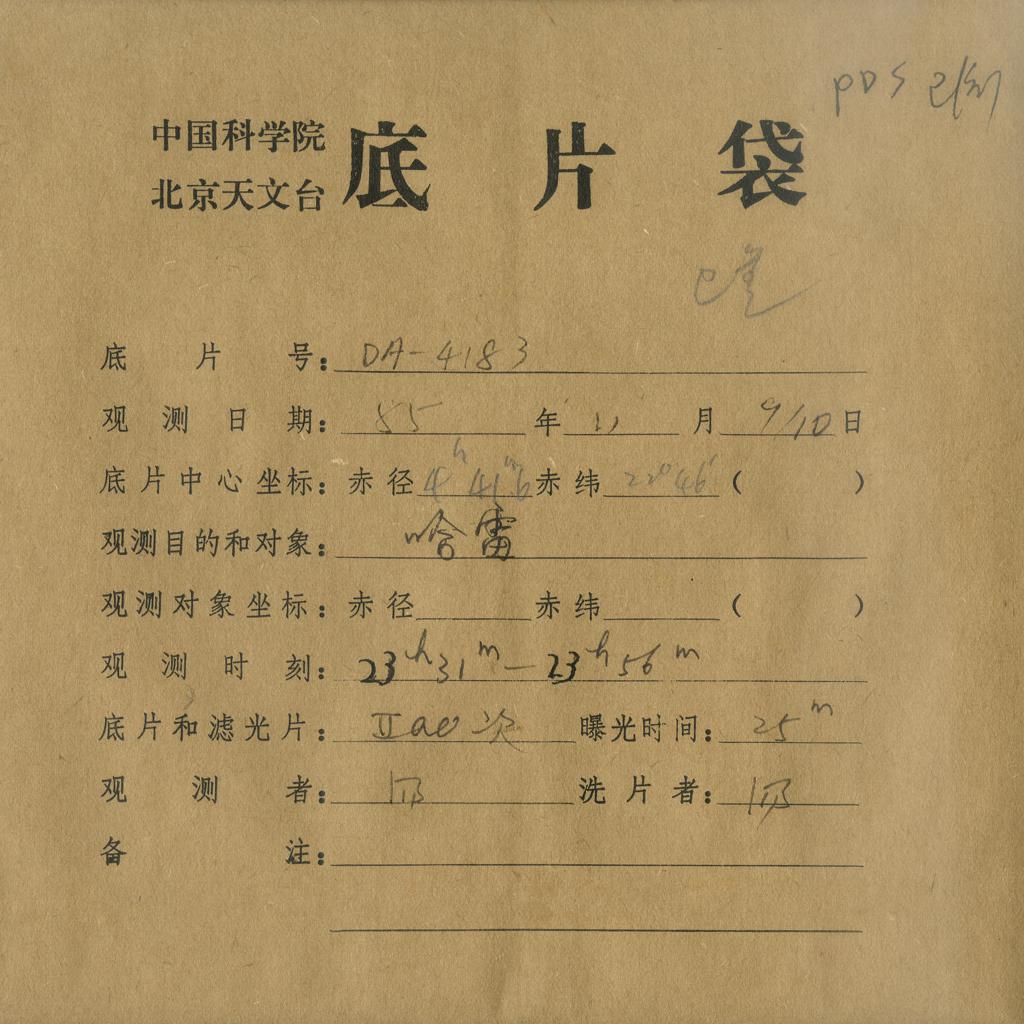 PDS 已
中国科学院
北京天文台
底片袋
已
底片号：DA-4183
观测日期：85年11月9/10日
底片中心坐标：赤径4h 41m6 赤纬22°46′（ ）
观测目的和对象：哈雷
观测对象坐标：赤径 赤纬 （ ）
观测时刻：23h31m—23h56m
底片和滤光片：IIaO 曝光时间：25m
观测者： 洗片者：
备注：